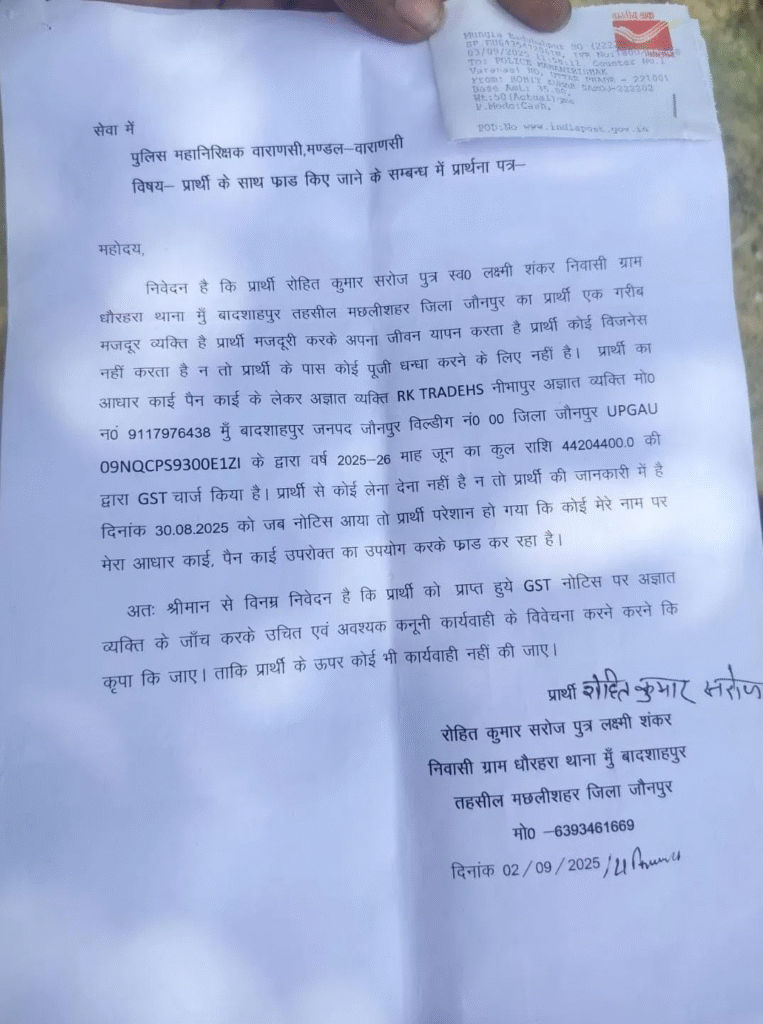 भारतीय डाक
Mungra Badshahpur SO (222
03/09/2025
Counter No:1
To: POLICE MAHANIRIKSHAK
Varanasi HO, UTTAR PRADE - 221001
From: ROHIT KUMAR SAROJ-222202
Base Amt: 35.00,
Wt:50(Actual)gms
P.Mode:Cash,
POD:No www.indiapost.gov.in
सेवा में
पुलिस महानिरिक्षक वाराणसी,मण्डल–वाराणसी
विषय– प्रार्थी के साथ फाड किए जाने के सम्बन्ध में प्रार्थना पत्र–
महोदय,
निवेदन है कि प्रार्थी रोहित कुमार सरोज पुत्र स्व0 लक्ष्मी शंकर निवासी ग्राम
धौरहरा थाना मुँ बादशाहपुर तहसील मछलीशहर जिला जौनपुर का प्रार्थी एक गरीब
मजदूर व्यक्ति है प्रार्थी मजदूरी करके अपना जीवन यापन करता है प्रार्थी कोई विजनेस
नहीं करता है न तो प्रार्थी के पास कोई पूजी धन्धा करने के लिए नहीं है। प्रार्थी का
आधार काई पैन काई के लेकर अज्ञात व्यक्ति RK TRADEHS नीभापुर अज्ञात व्यक्ति मो0
न0 9117976438 मुँ बादशाहपुर जनपद जौनपुर विल्डीग नं0 00 जिला जौनपुर UPGAU
09NQCPS9300E1ZI के द्वारा वर्ष 2025–26 माह जून का कुल राशि 44204400.0 की
द्वारा GST चार्ज किया है। प्रार्थी से कोई लेना देना नहीं है न तो प्रार्थी की जानकारी में है
दिनांक 30.08.2025 को जब नोटिस आया तो प्रार्थी परेशान हो गया कि कोई मेरे नाम पर
मेरा आधार काई, पैन काई उपरोक्त का उपयोग करके फ्राड कर रहा है।
अतः श्रीमान से विनम्र निवेदन है कि प्रार्थी को प्राप्त हुये GST नोटिस पर अज्ञात
व्यक्ति के जाँच करके उचित एवं अवश्यक कनूनी कार्यवाही के विवेचना करने करने कि
कृपा कि जाए। ताकि प्रार्थी के ऊपर कोई भी कार्यवाही नहीं की जाए।
प्रार्थी रोहित कुमार सरोज
रोहित कुमार सरोज पुत्र लक्ष्मी शंकर
निवासी ग्राम धौरहरा थाना मुँ बादशाहपुर
तहसील मछलीशहर जिला जौनपुर
मो0 –6393461669
दिनांक 02/09/2025